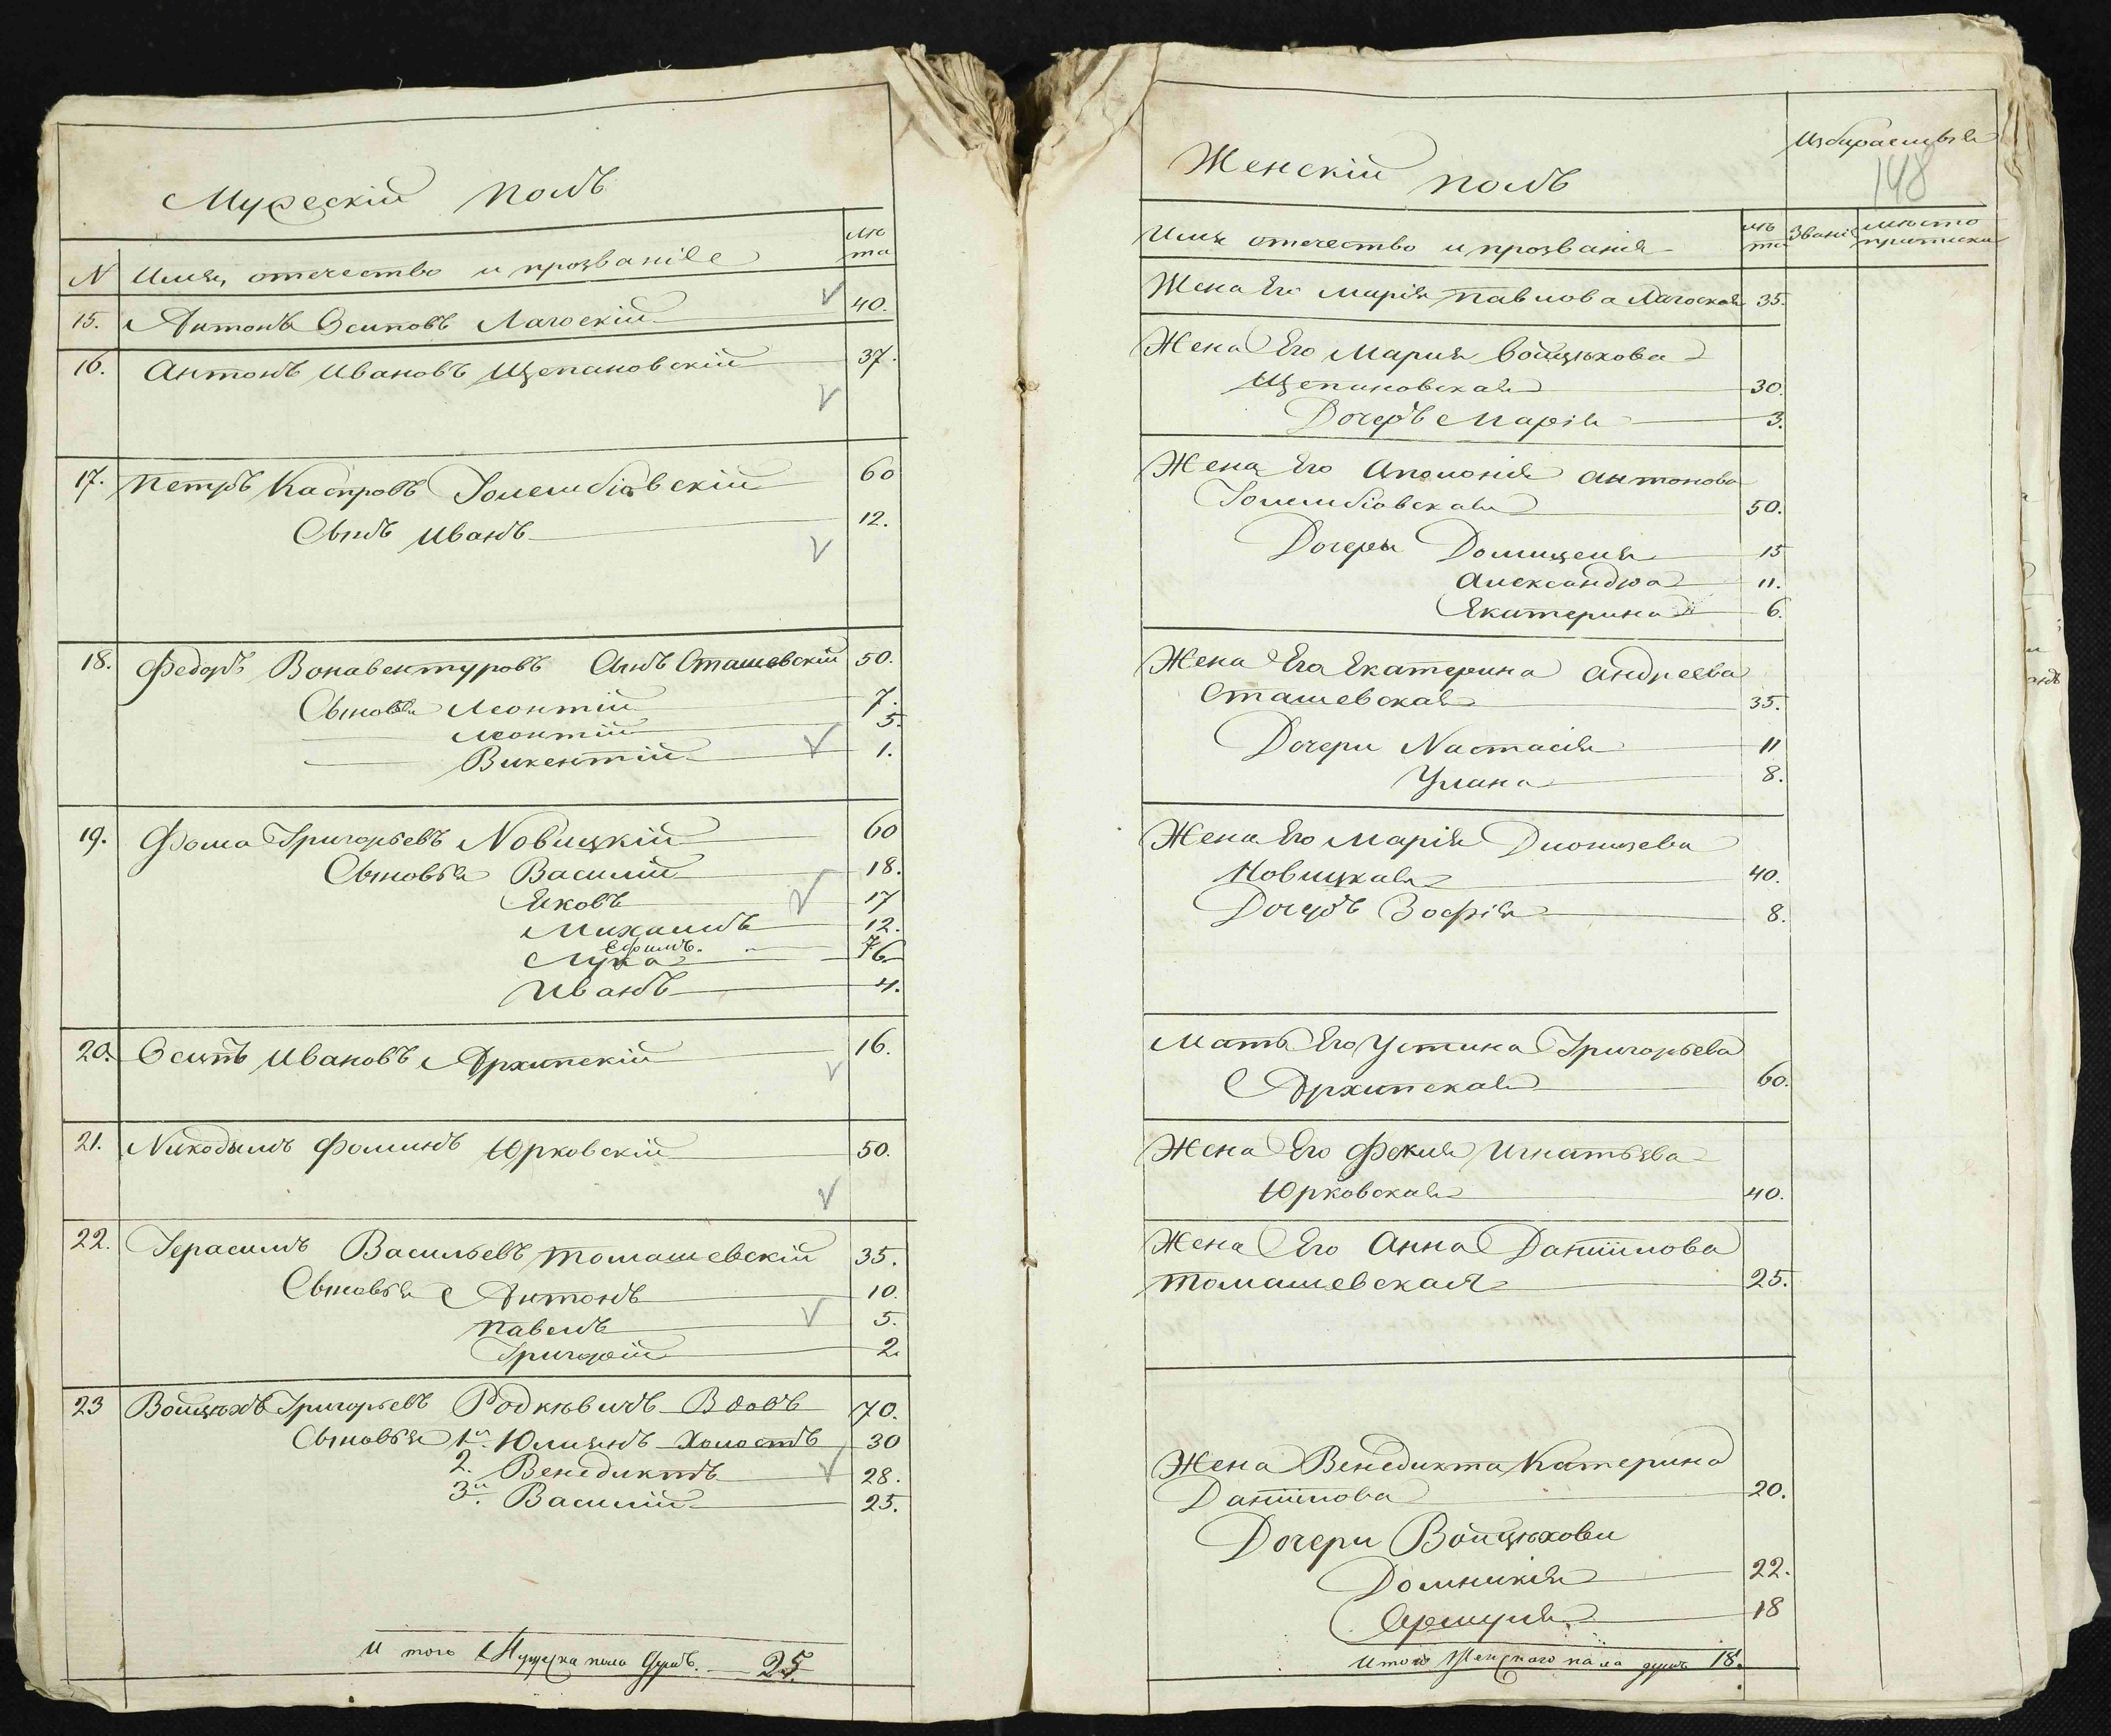 Мужескій полъ
N Имя, отечество и прозваніе лѣта
15. Антонъ Осиповъ Лагоскій 40.
16. Антонъ Ивановъ Щепановскій 37.
17. Петръ КаспровъГолембіовскій 60
Сынъ Иванъ 12.
18. Федоръ Бонавентуровъ Сынъ Сташевскій 50.
Сыновья Леонтій 7.
Леонтій 5.
Викентій 1.
19. Фома Григорьевъ Новицкій 60
Сыновья Василій 18.
Яковъ 17
Михаилъ 12.
Ефимъ. 7.
Лука 6
Иванъ 4.
20. Осипъ Ивановъ Архипскій 16.
21. Никодымъ Фоминъ Юрковскій 50.
22. Герасимъ Васильевъ Томашевскій 35.
Сыновья Антонъ 10.
Павелъ 5.
Григорій 2.
23 Войцѣхъ Григорьевъ Родкѣвичъ Вдовъ 70.
Сыновья 1й Юлиянъ Холостъ 30
2. Венедиктъ 28.
3й. Василій 25.
И того Мужеска пола душъ. 25.
Женскій полъ
148
Имя отечество и прозванія лѣта Званія мѣсто приписки
Жена Его Марія Павлова Лагоская 35.
Жена Его Мария Войцѣхова
Щепановская 30.
Дочерь Марія 3.
Жена Его Аполонія Антонова
Голембіовская 50.
Дочери Домицеля 15
Александра 11.
Екатерина 6.
Жена Его Екатерина Андреева
Сташевская 35.
Дочери Настасія 11
Улиана 8.
Жена Его Марія Дионизева
Новицкая 40.
Дочерь Зофія 8.
Мать Его Устина Григорьева
Архипская 60.
Жена Его Фекля Игнатьева
Юрковская 40.
Жена Его Анна Даніилова
Томашевская 25.
Жена Венедикта Катерина
Даніилова 20.
Дочери Войцѣховы
Домникія 22.
18
Итого Женскаго пола душъ 18.